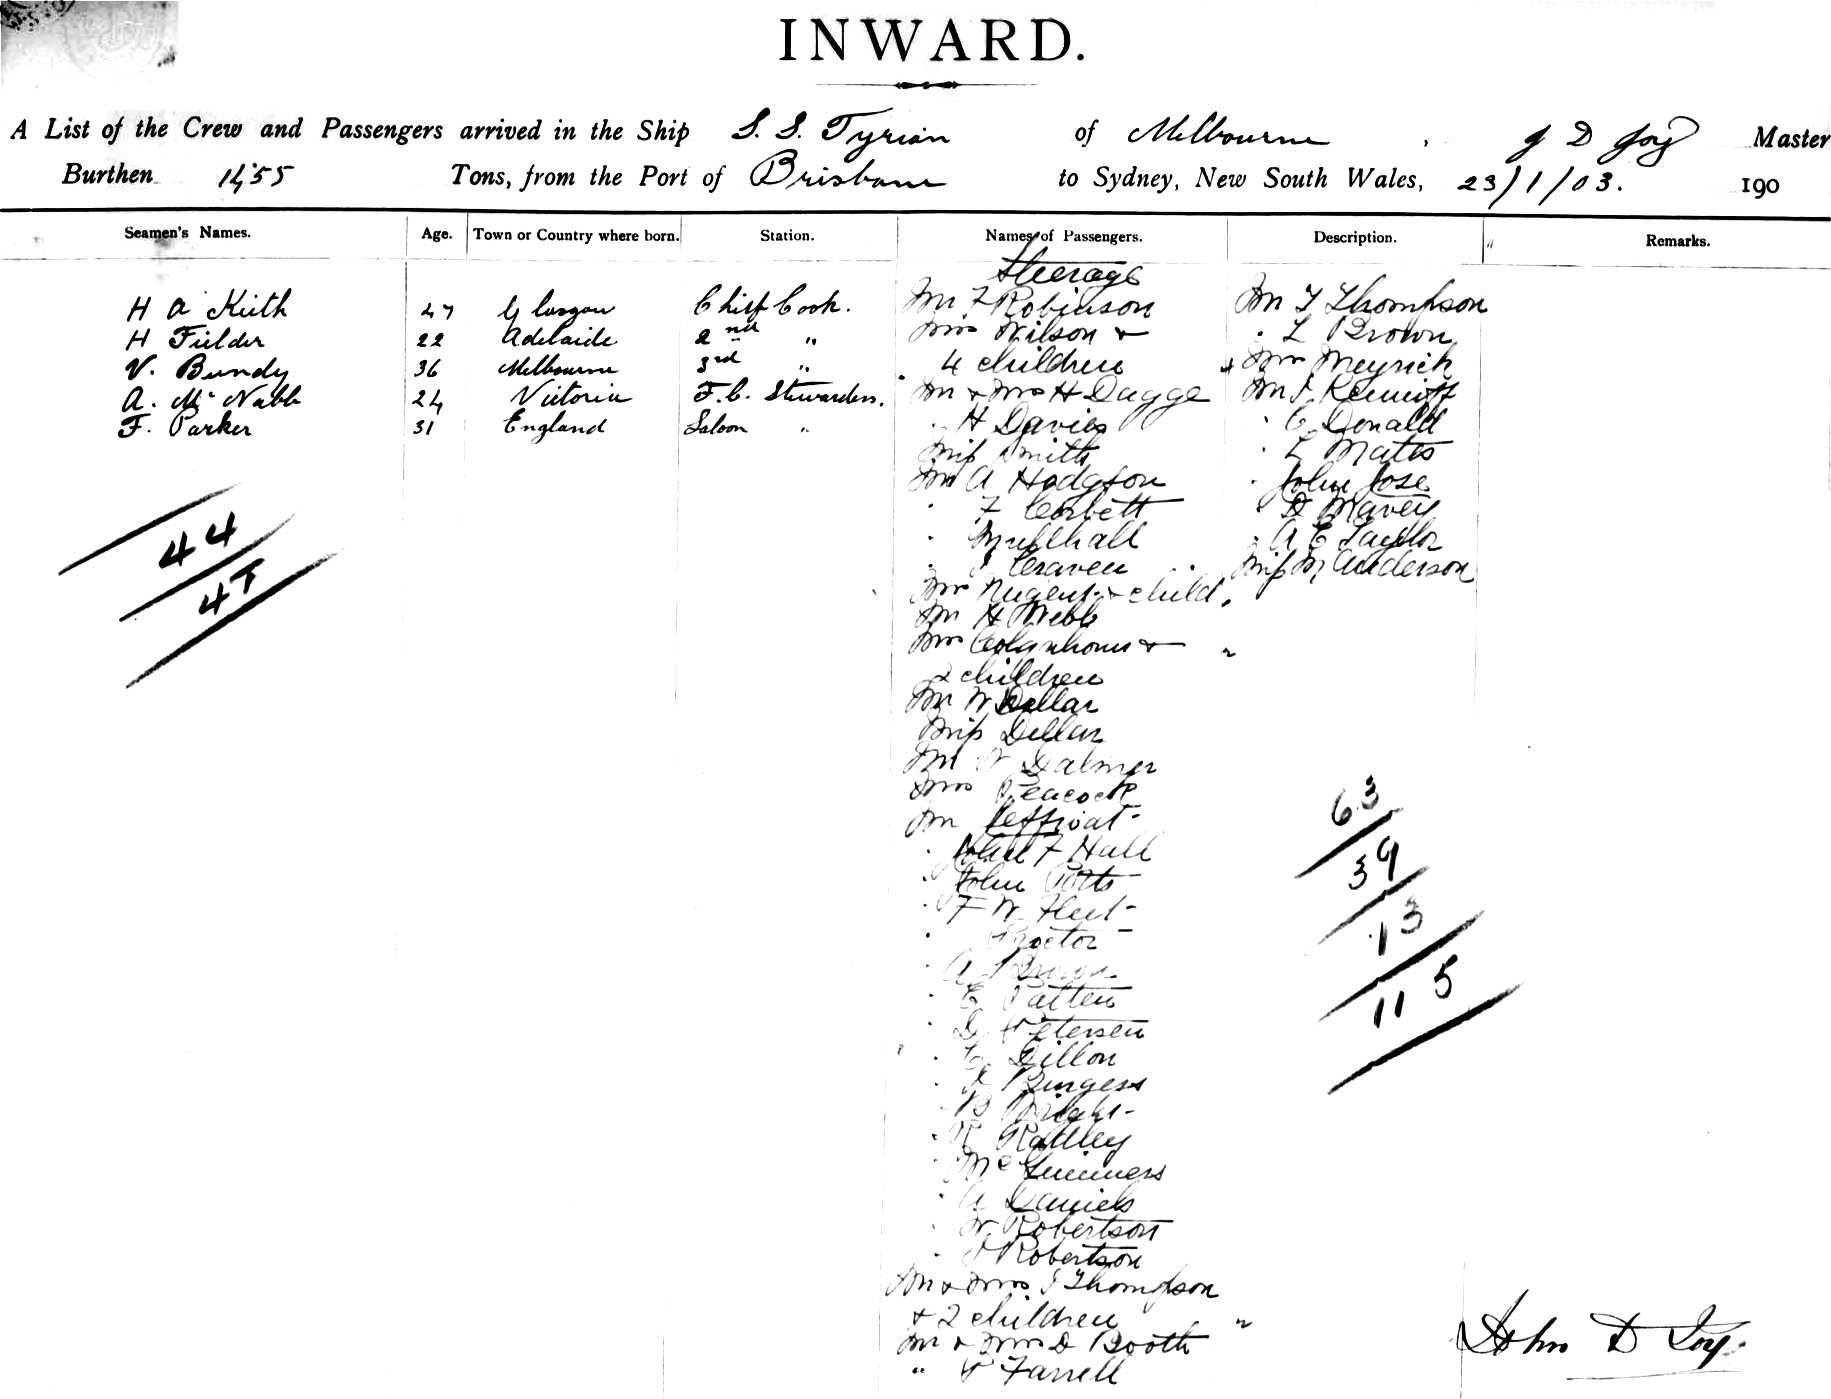 INWARD.
A List of the Crew and Passengers arrived in the Ship S. S. Tyrian of Melbourne, J D Joy Master
Burthen 1455 Tons, from the Port of Brisbane to Sydney, New South Wales, 23/1/03. 190
Seamen's Names. Age. Town or Country where born. Station. Names of Passengers. Description. Remarks.
H A Keith 47 Glasgow Chief Cook.
H Fielder 22 Adelaide 2nd "
V. Bundy 36 Melbourne 3rd "
A. McNabb 24 Victoria F.C. Stewardess.
F. Parker 31 England Saloon "
44
47
Steerage
Mr F Robinson
Mrs Wilson +
4 children
Mr + Mrs H Dagge
. H Davies
Miss Smith
Mr A Hodgson
. F Corbett
. Mullhall
. Craven
Mrs Nugent + child
Mr H Webb
Mrs Colquhoun +
2 children
Mr W Dellar
Miss Dellar
Mr Dalmer
Mrs Peacock
Mr
. F Hall
. John Potts
. F W Fleet
. Proctor
. A Brown
. C Patten
. Petersen
. C Dillon
. Burgess
. B Wright
. Radley
. McGuiness
. A Daniels
. W Robertson
. J Robertson
Mr + Mrs J Thompson
+ 2 children "
Mr + Mrs D Booth
" Farrell
Mr T Thompson
. L Brown
Mrs Meyrick
Mr J
. C Donald
. L Mates
. John Jose
. D Mavey
. A E Taylor
Miss M Anderson
63
39
13
115
John D Joy.